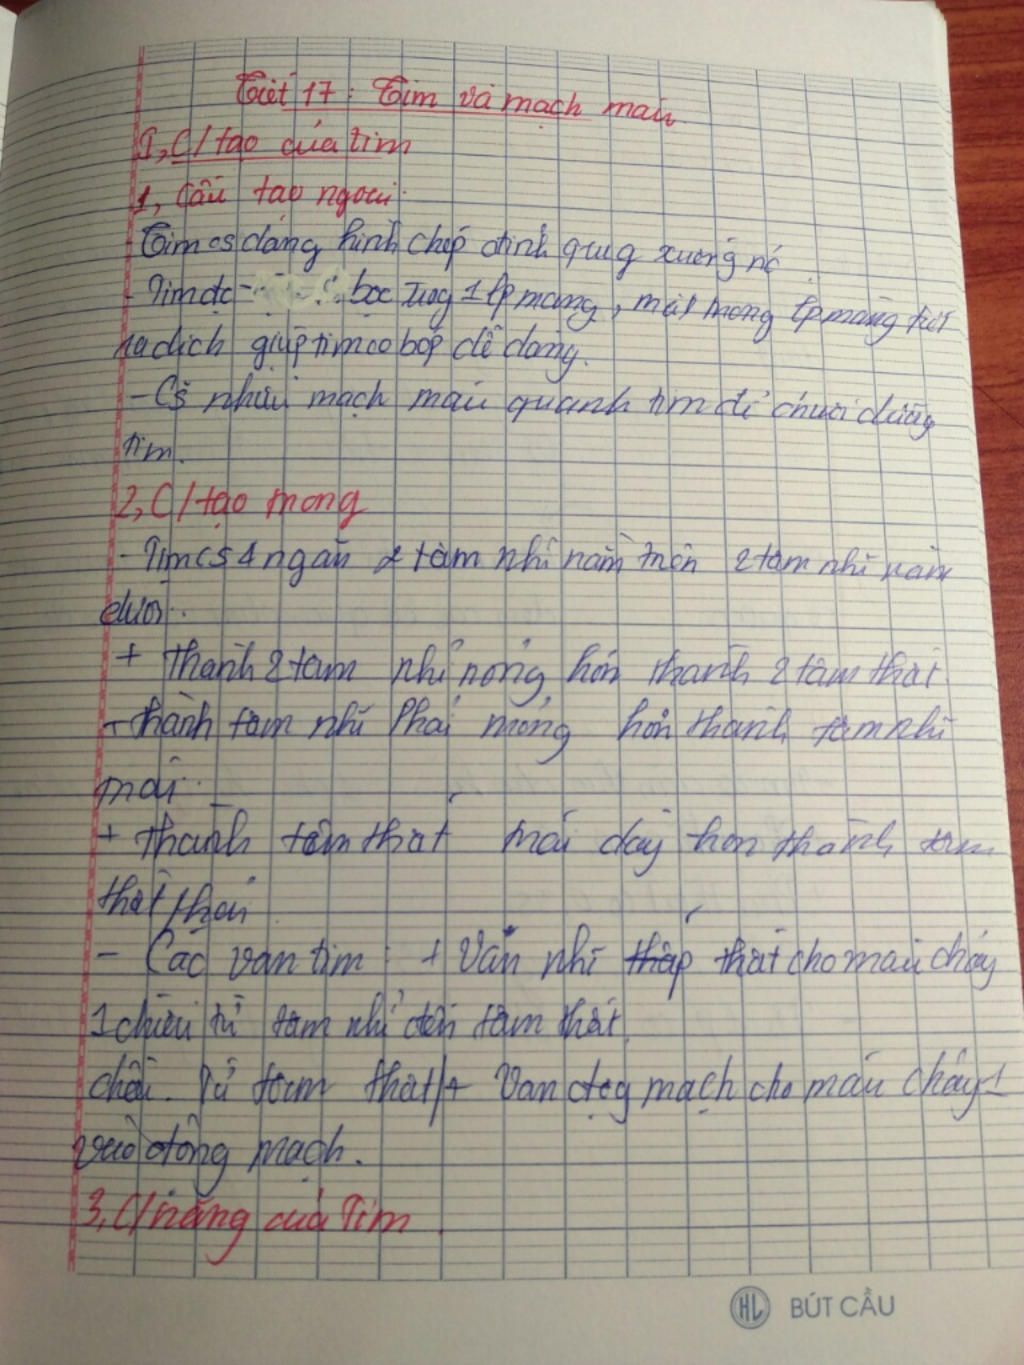 Tiết 17: Tim và mạch máu
I, C/tạo của tim
1, Cấu tạo ngoài
- Tim cs dáng hình chóp đỉnh quay xuống
- Tim đc bọc 1 lp màng, mặt trong lp màng tiết
ra dịch giúp tim co bóp dễ dàng.
- Cs nhiều mạch máu quanh tim để dưỡng
tim.
2, C/tạo trong
- Tim cs 4 ngăn 2 tâm nhĩ nằm trên 2 tâm nhĩ nằm
dưới.
+ Thành 2 tâm nhĩ mỏng hơn thành 2 tâm thất
+ thành tâm nhĩ Phải mỏng hơn thành tâm nhĩ
trái.
+ Thành tâm thất trái dày hơn thành tâm
thất phải.
- Các van tim: + Van nhĩ thất cho máu chảy
1 chiều từ tâm nhĩ đến tâm thất.
chiều. Từ tâm thất/+ Van động mạch cho máu chảy 1
vào động mạch.
3, C/năng của Tim.
HL BÚT CẦU